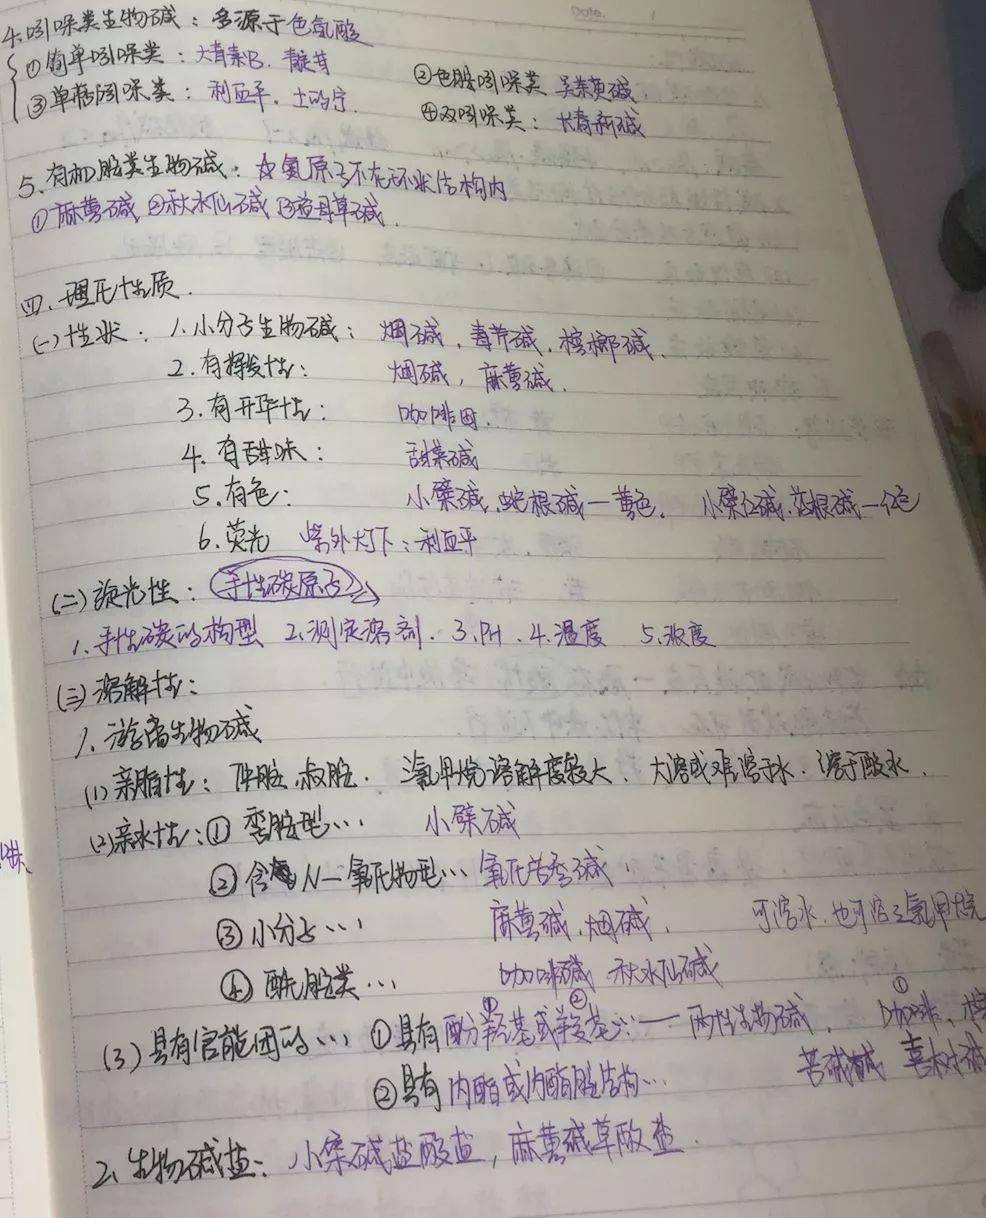 Date.
4.吲哚类生物碱：多源于色氨酸
①简单吲哚类：大青素B、靛苷 ②色胺吲哚类 吴茱萸碱
③单萜吲哚类：利血平、士的宁 ④双吲哚类：长春新碱
5、有机胺类生物碱：☆氮原子不在环状结构内
①麻黄碱 ②秋水仙碱 ③益母草碱.
四、理化性质.
(一)性状：1.小分子生物碱：烟碱，毒芹碱，槟榔碱.
2.有挥发性：烟碱，麻黄碱.
3.有升华性：咖啡因.
4.有甜味：甜菜碱
5.有色：小檗碱、蛇根碱一黄色. 小檗红碱、药根碱一红色
6.荧光 紫外灯下：利血平
(二)旋光性：手性碳原子
1.手性碳的构型 2.测定溶剂. 3.PH. 4.温度 5.浓度
(三)溶解性：
1.游离生物碱
(1)亲脂性：仲胺、叔胺. 三氯甲烷溶解度较大. 不溶或难溶于水. 溶于酸水.
(2)亲水性：①季胺型… 小檗碱
②含N一氧化物型… 氧化苦参碱
③小分子… 麻黄碱、烟碱. 可溶水、也可溶三氯甲烷
④酰胺类… 咖啡碱 秋水仙碱
(3)具有官能团的… ①具有酚羟基或羧基：一两性生物碱. ①
②具有内酯或内酰胺结构… 苦碱 喜树碱
2、生物碱盐：小檗碱盐酸盐，麻黄碱草酸盐.